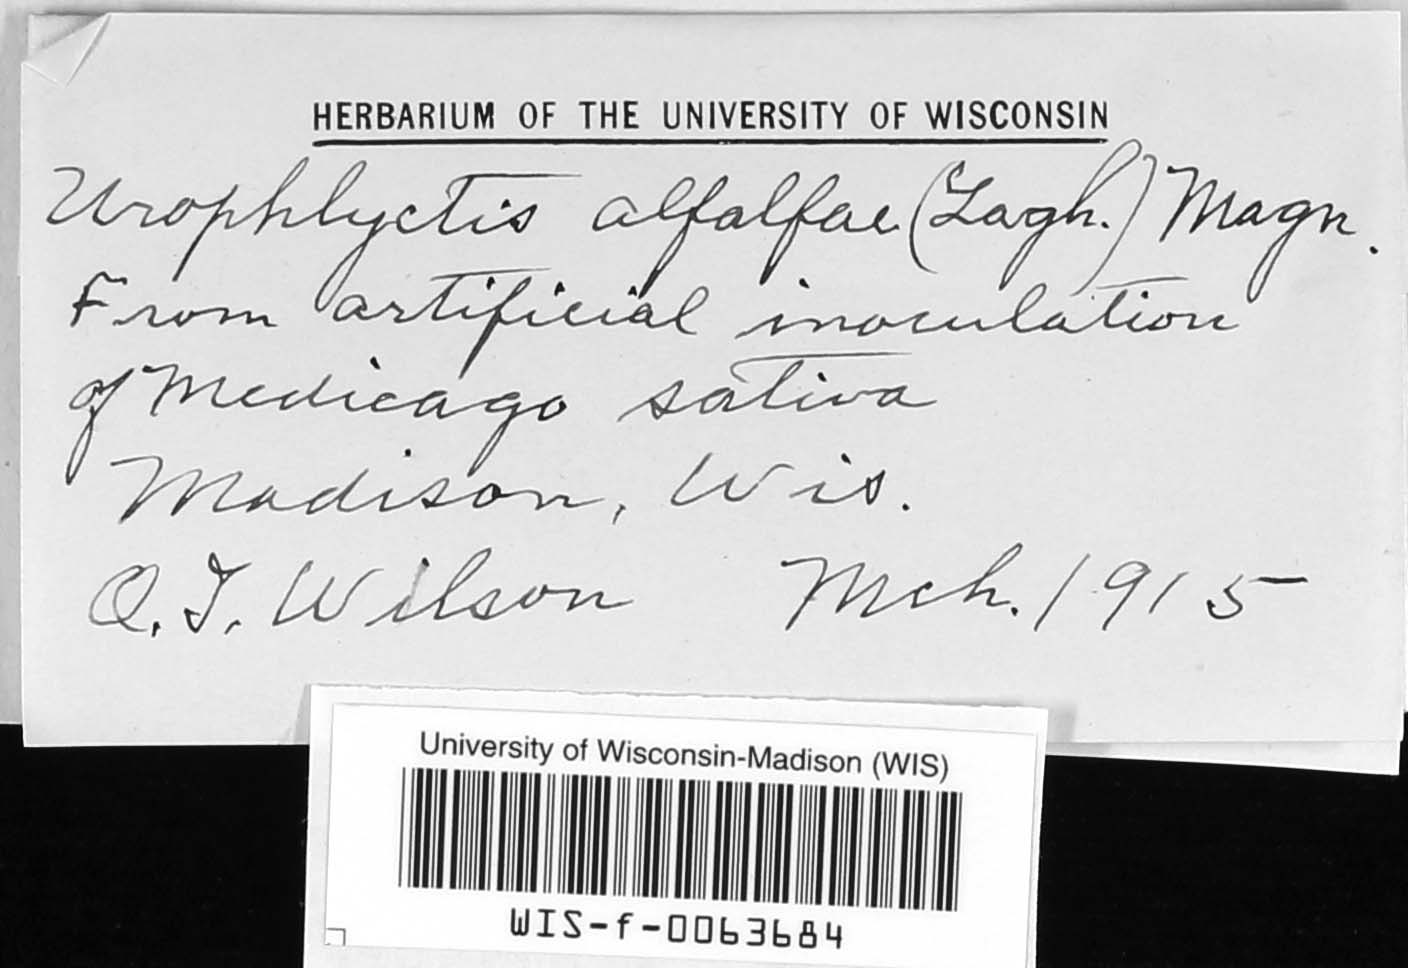 HERBARIUM OF THE UNIVERSITY OF WISCONSIN
Urophlyctis alfalfae (Lagh.) Magn.
From artificial inoculation
of Medicago sativa
Madison, Wis.
O. T. Wilson Mch. 1915
University of Wisconsin-Madison (WIS)
WIS-f-0063684